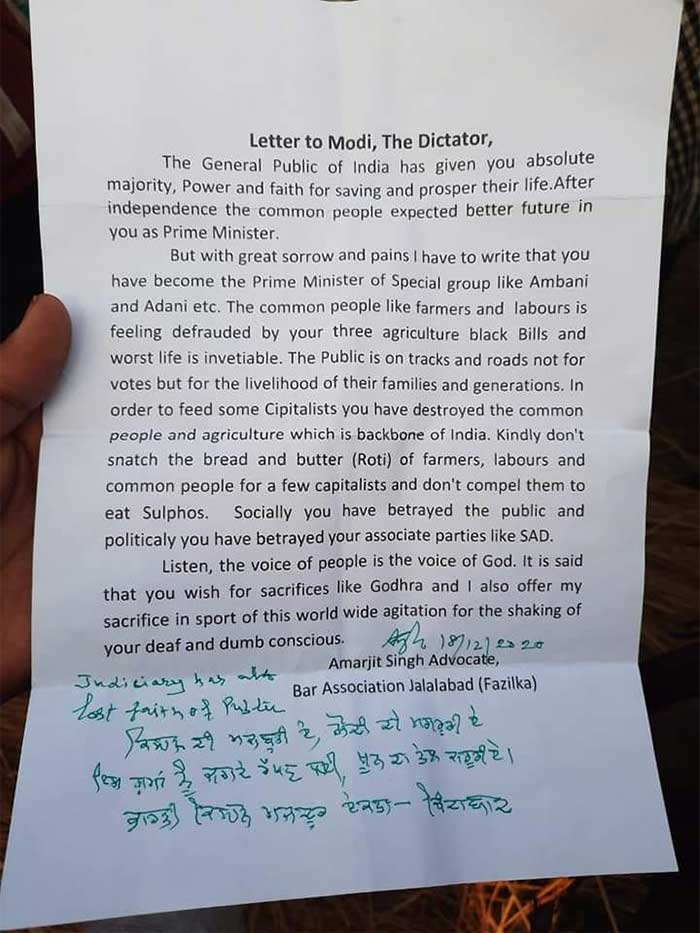 Letter to Modi, The Dictator,
The General Public of India has given you absolute
majority, Power and faith for saving and prosper their life.After
independence the common people expected better future in
you as Prime Minister.
But with great sorrow and pains I have to write that you
have become the Prime Minister of Special group like Ambani
and Adani etc. The common people like farmers and labours is
feeling defrauded by your three agriculture black Bills and
worst life is invetiable. The Public is on tracks and roads not for
votes but for the livelihood of their families and generations. In
order to feed some Cipitalists you have destroyed the common
people and agriculture which is backbone of India. Kindly don't
snatch the bread and butter (Roti) of farmers, labours and
common people for a few capitalists and don't compel them to
eat Sulphos. Socially you have betrayed the public and
politicaly you have betrayed your associate parties like SAD.
Listen, the voice of people is the voice of God. It is said
that you wish for sacrifices like Godhra and I also offer my
sacrifice in sport of this world wide agitation for the shaking of
your deaf and dumb conscious.
18/12/2020
Amarjit Singh Advocate,
Bar Association Jalalabad (Fazilka)
Judiciary has also
lost faith of Public
ਕਿਸਾਨ ਦੀ ਮਜਬੂਰੀ ਏ, ਮੋਦੀ ਦੀ ਮਗਰੂਰੀ ਏ
ਇਸ ਸ਼ਮਾਂ ਨੂੰ ਜਗਦੇ ਰੱਖਣ ਲਈ, ਖੂਨ ਦਾ ਤੇਲ ਜਰੂਰੀ ਏ।
ਭਾਰਤੀ ਕਿਸਾਨ ਮਜਦੂਰ ਏਕਤਾ — ਜਿੰਦਾਬਾਦ